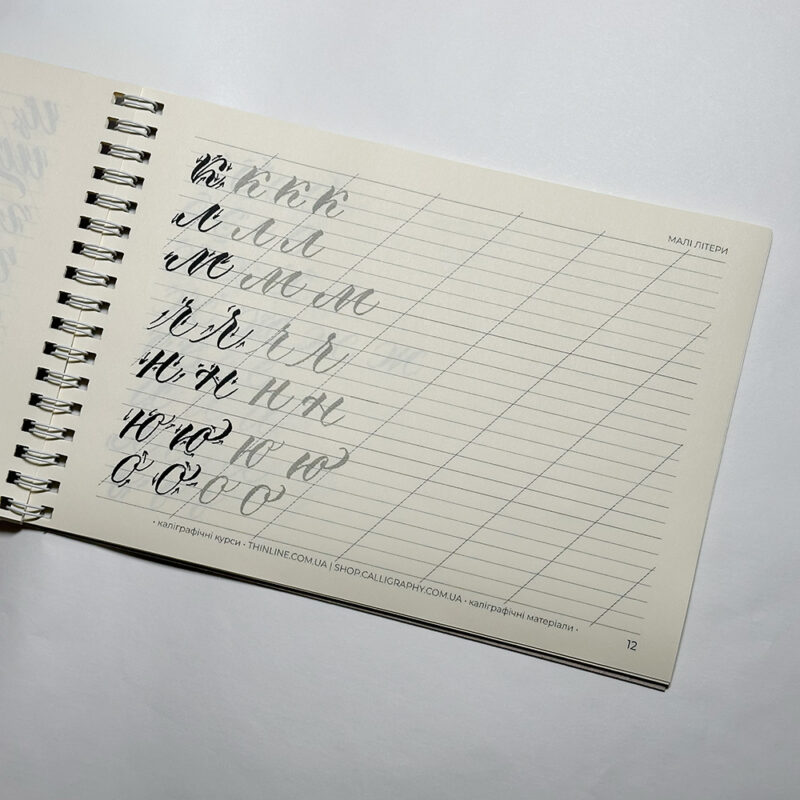 МАЛІ ЛІТЕРИ
к к к к
л л л
м м м
н н н н
ю ю ю ю
о о о о
• каліграфічні курси • THINLINE.COM.UA | SHOP.CALLIGRAPHY.COM.UA • каліграфічні матеріали •
12